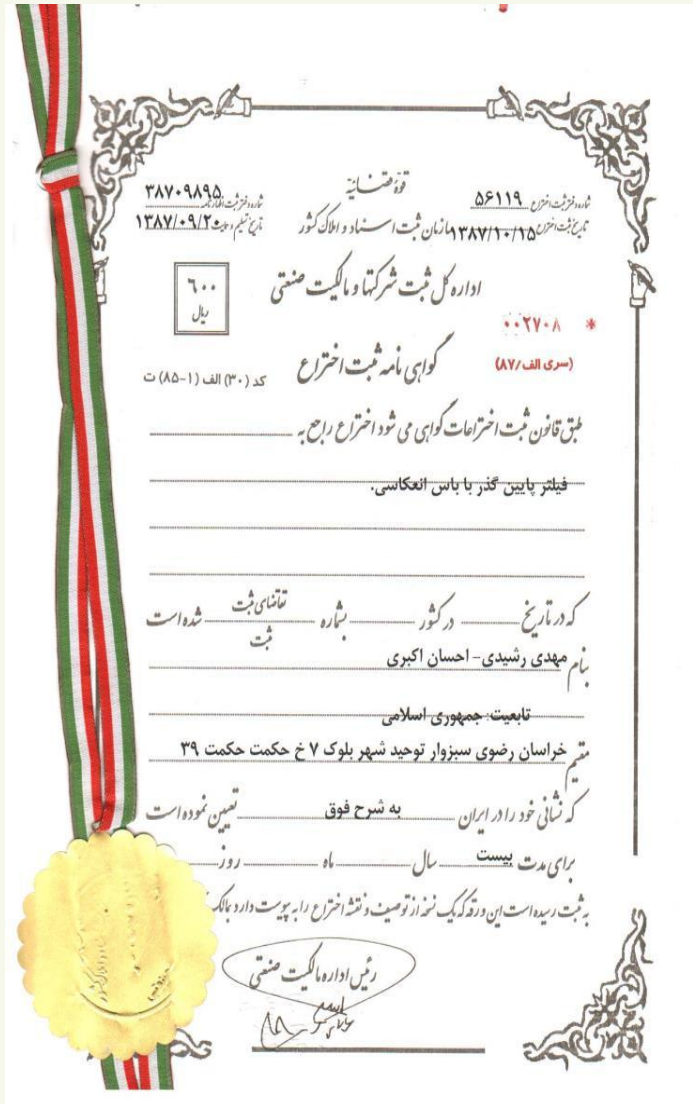 قوهٔ قضائیه
شماره دفتر ثبت اختراع ۵۶۱۱۹
شماره دفتر ثبت اظهارنامه ۳۸۷۰۹۸۹۵
تاریخ ثبت اختراع ۱۳۸۷/۱۰/۱۵
سازمان ثبت اسناد و املاک کشور
تاریخ تسلیم و ۱۳۸۷/۰۹/۲۰
اداره کل ثبت شرکتها و مالکیت صنعتی
۶۰۰
ریال
* ۰۰۲۷۰۸
(سری الف/۸۷)
گواهی نامه ثبت اختراع
کد (۳۰) الف (۱-۸۵) ت
طبق قانون ثبت اختراعات گواهی می شود اختراع راجع به
فیلتر پایین گذر با باس انعکاسی.
که در تاریخ در کشور بشماره تقاضای ثبت شده است
ثبت
بنام مهدی رشیدی- احسان اکبری
تابعیت: جمهوری اسلامی
مقیم خراسان رضوی سبزوار توحید شهر بلوک ۷ خ حکمت حکمت ۳۹
که نشانی خود را در ایران به شرح فوق تعیین نموده است
برای مدت بیست سال ماه روز
به ثبت رسیده است این ورقه که یک نسخه از توصیف و نقشه اختراع را به پیوست دارد
رئیس اداره مالکیت صنعتی